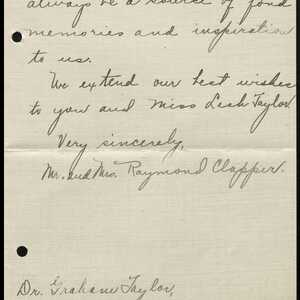 always be a source of fond
memories and inspiration
to us.
We extend our best wishes
to you and Miss Leah Taylor.
Very sincerely,
Mr. and Mrs. Raymond Clapper.
Dr. Graham Taylor,